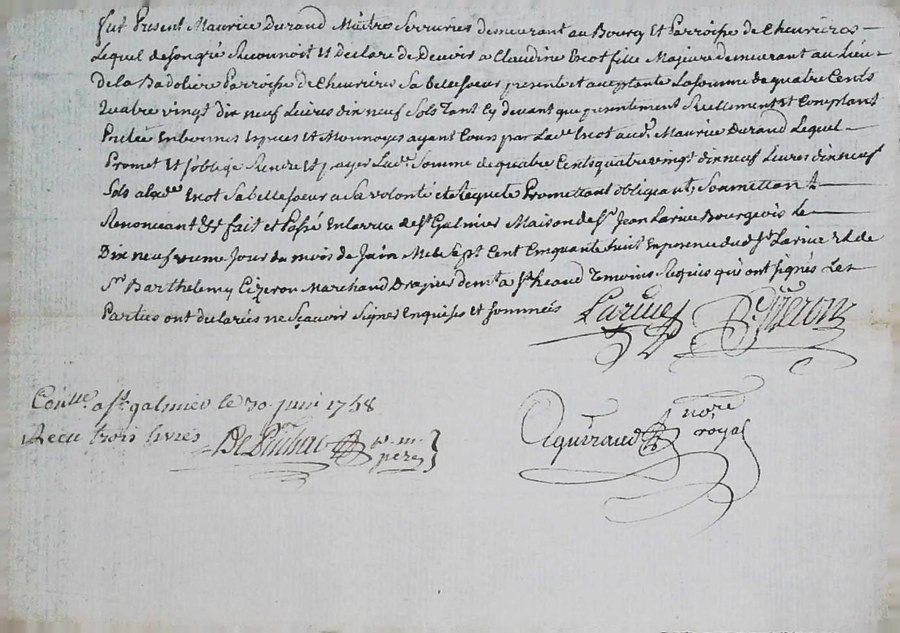 fut Present Maurice Durand Maitres Serrurier demeurant au Bourg et Parroisse de Cheurieres
Lequel de son gré Reconnoit et Declare de Devoir a Claudine fille Majeure demeurant au Lieu
de la Badoliere Parroisse de Cheuriere Sa belle soeur presente et aceptante La somme de quatre Cents
quatre vingt dix neuf Livres dix neuf Sols Tant Cy devant que presentement Reellement et Comptant
en bonnes Especes et Monnoyes ayant Cours par Lade aud. Maurice Durand Lequel
Promet et s'oblige Rendre et payer Lade. Somme de quatre Cents quatre vingt dix neuf Livres dix neuf
Sols a lade Sa belle soeur a Sa volonté et Requete Promettant obligeant, Soumettant
Renoncant fait et Passé en de St. Galmier Maison de Sr. Jean Larue Bourgeois Le
Dix neuf vieme Jour du mois de Juin Mil Sept Cent Cinquante huit En presence dud. Sr. Larue et de
Sr. Barthelemy Cizeron Marchand demt. a St. Heand Temoins Requis qui ont signés Les
Parties ont declarées ne sçavoir Signer Enquises et sommées
Larue Cizeron
a St. galmier le 30 juin 1758
Recu trois livres
nore
royal